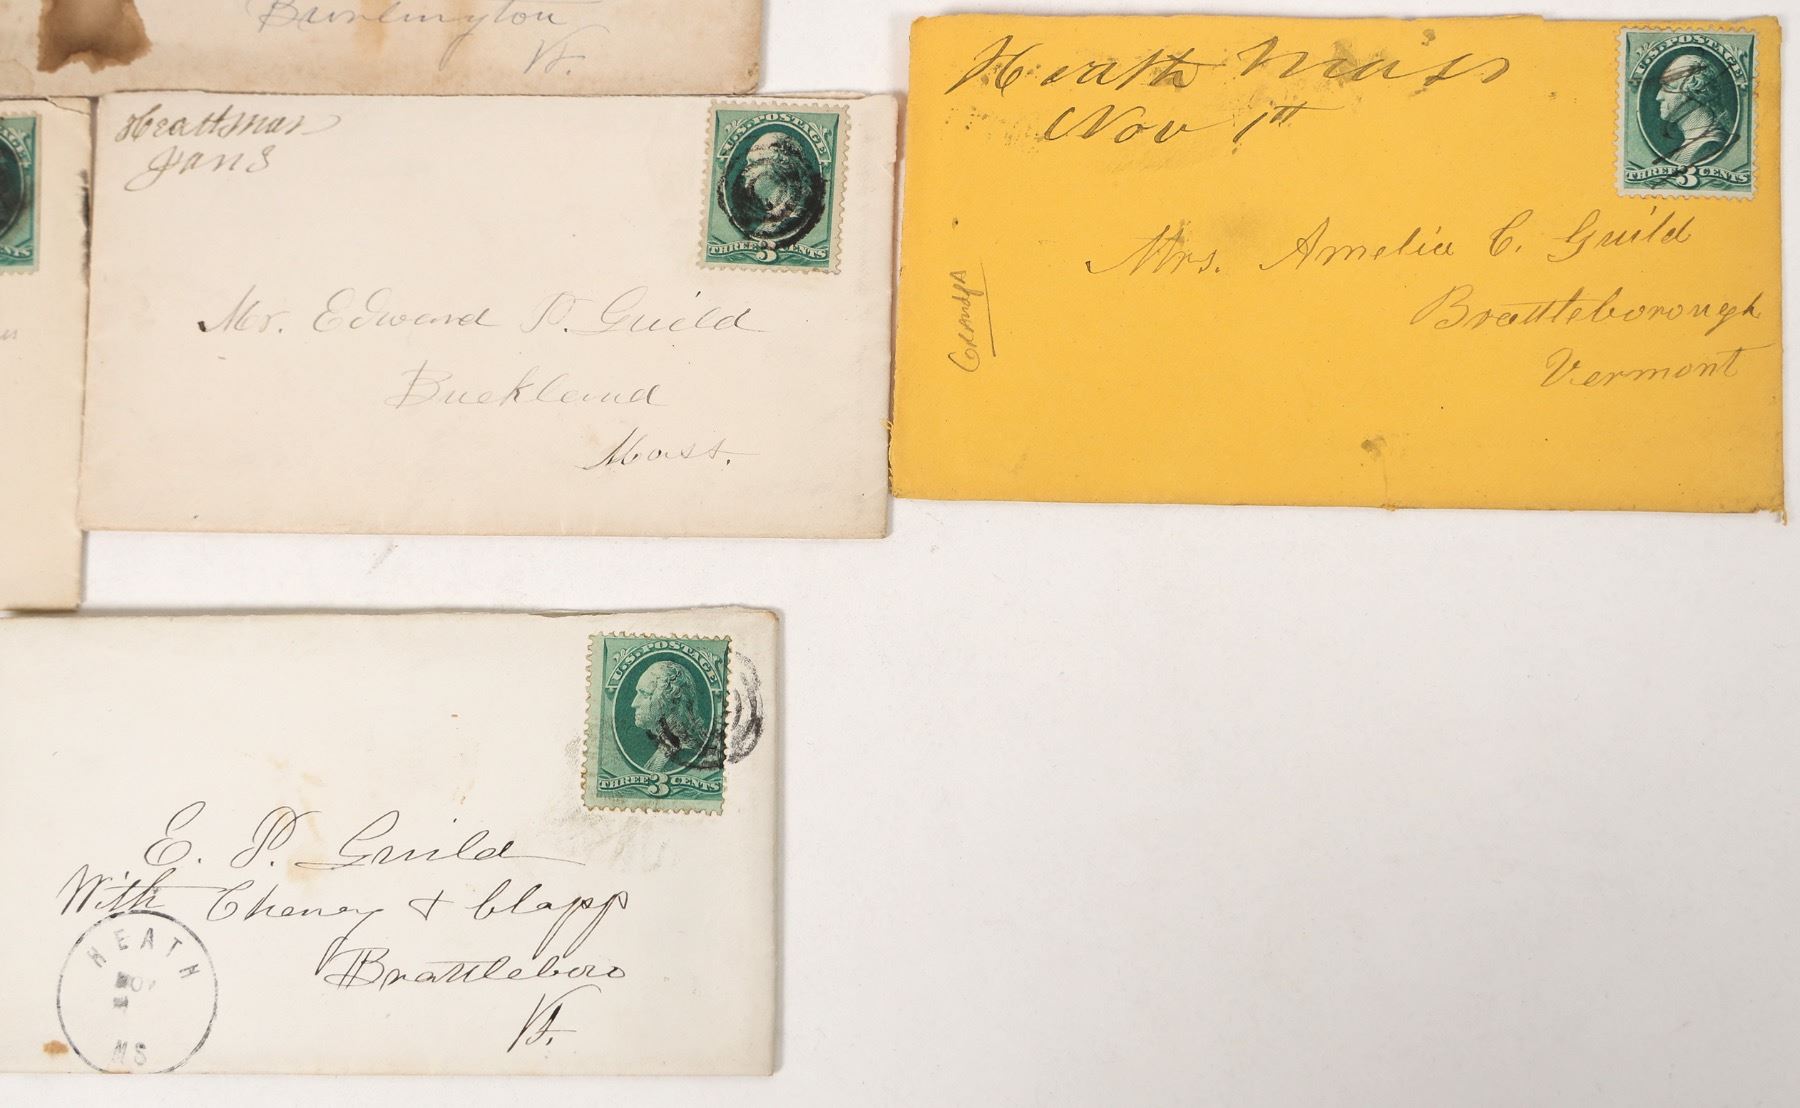 Burlington
Vt.
Heath Mass
Jan 8
U.S. POSTAGE
THREE 3 CENTS
Mr. Edward P. Guild
Buckland
Mass.
Heath Mass
Nov 1th
U.S. POSTAGE
THREE 3 CENTS
Mrs. Amelia C. Guild
Brattleborough
Vermont
GRANdpA
U.S. POSTAGE
THREE 3 CENTS
E. P. Guild
With Cheney & Clapp
Brattleboro
Vt.
HEATH
NOV
MS